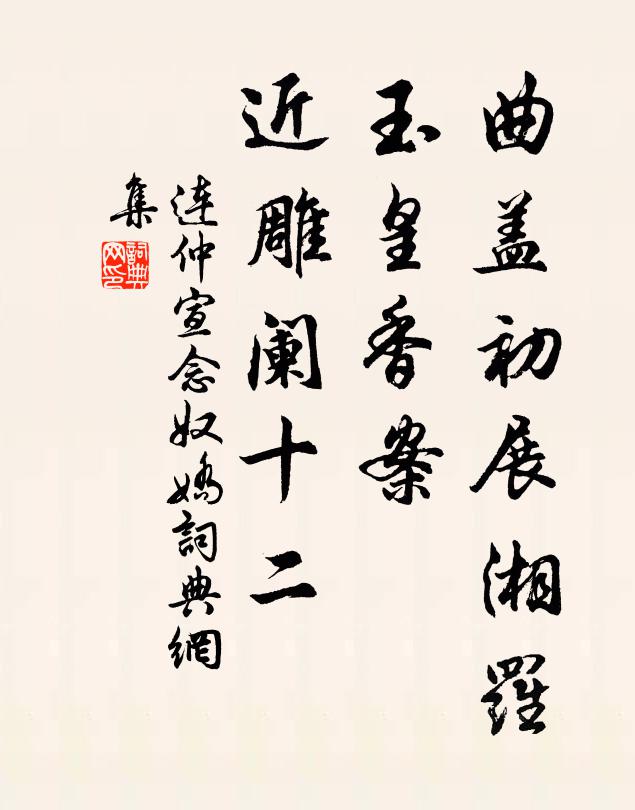 曲盖初展湘羅
玉皇香案
近雕阑十二
連仲宣念奴嬌詞典網
集
詞典网印